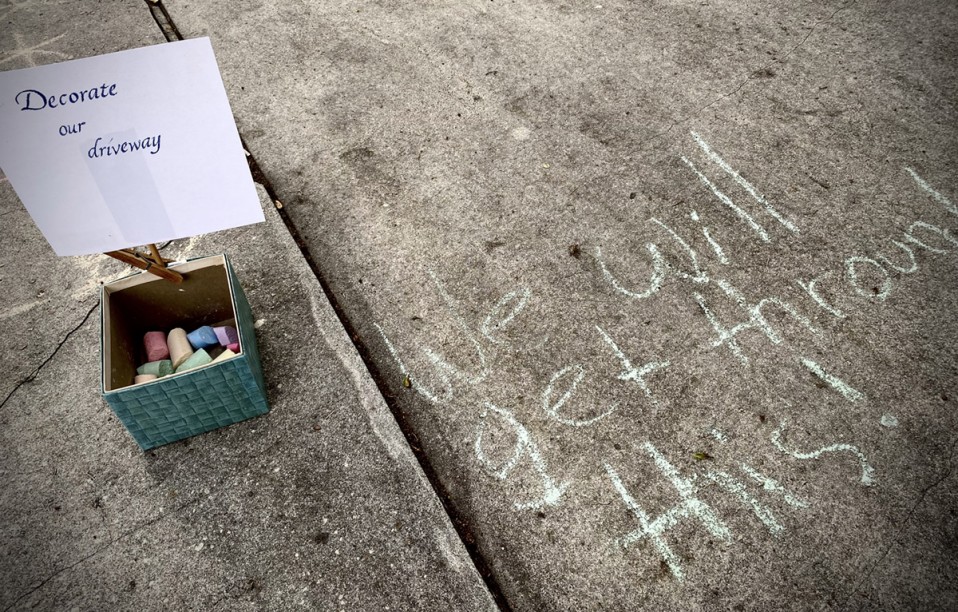 Decorate
our
driveway
We will
get throug
this!